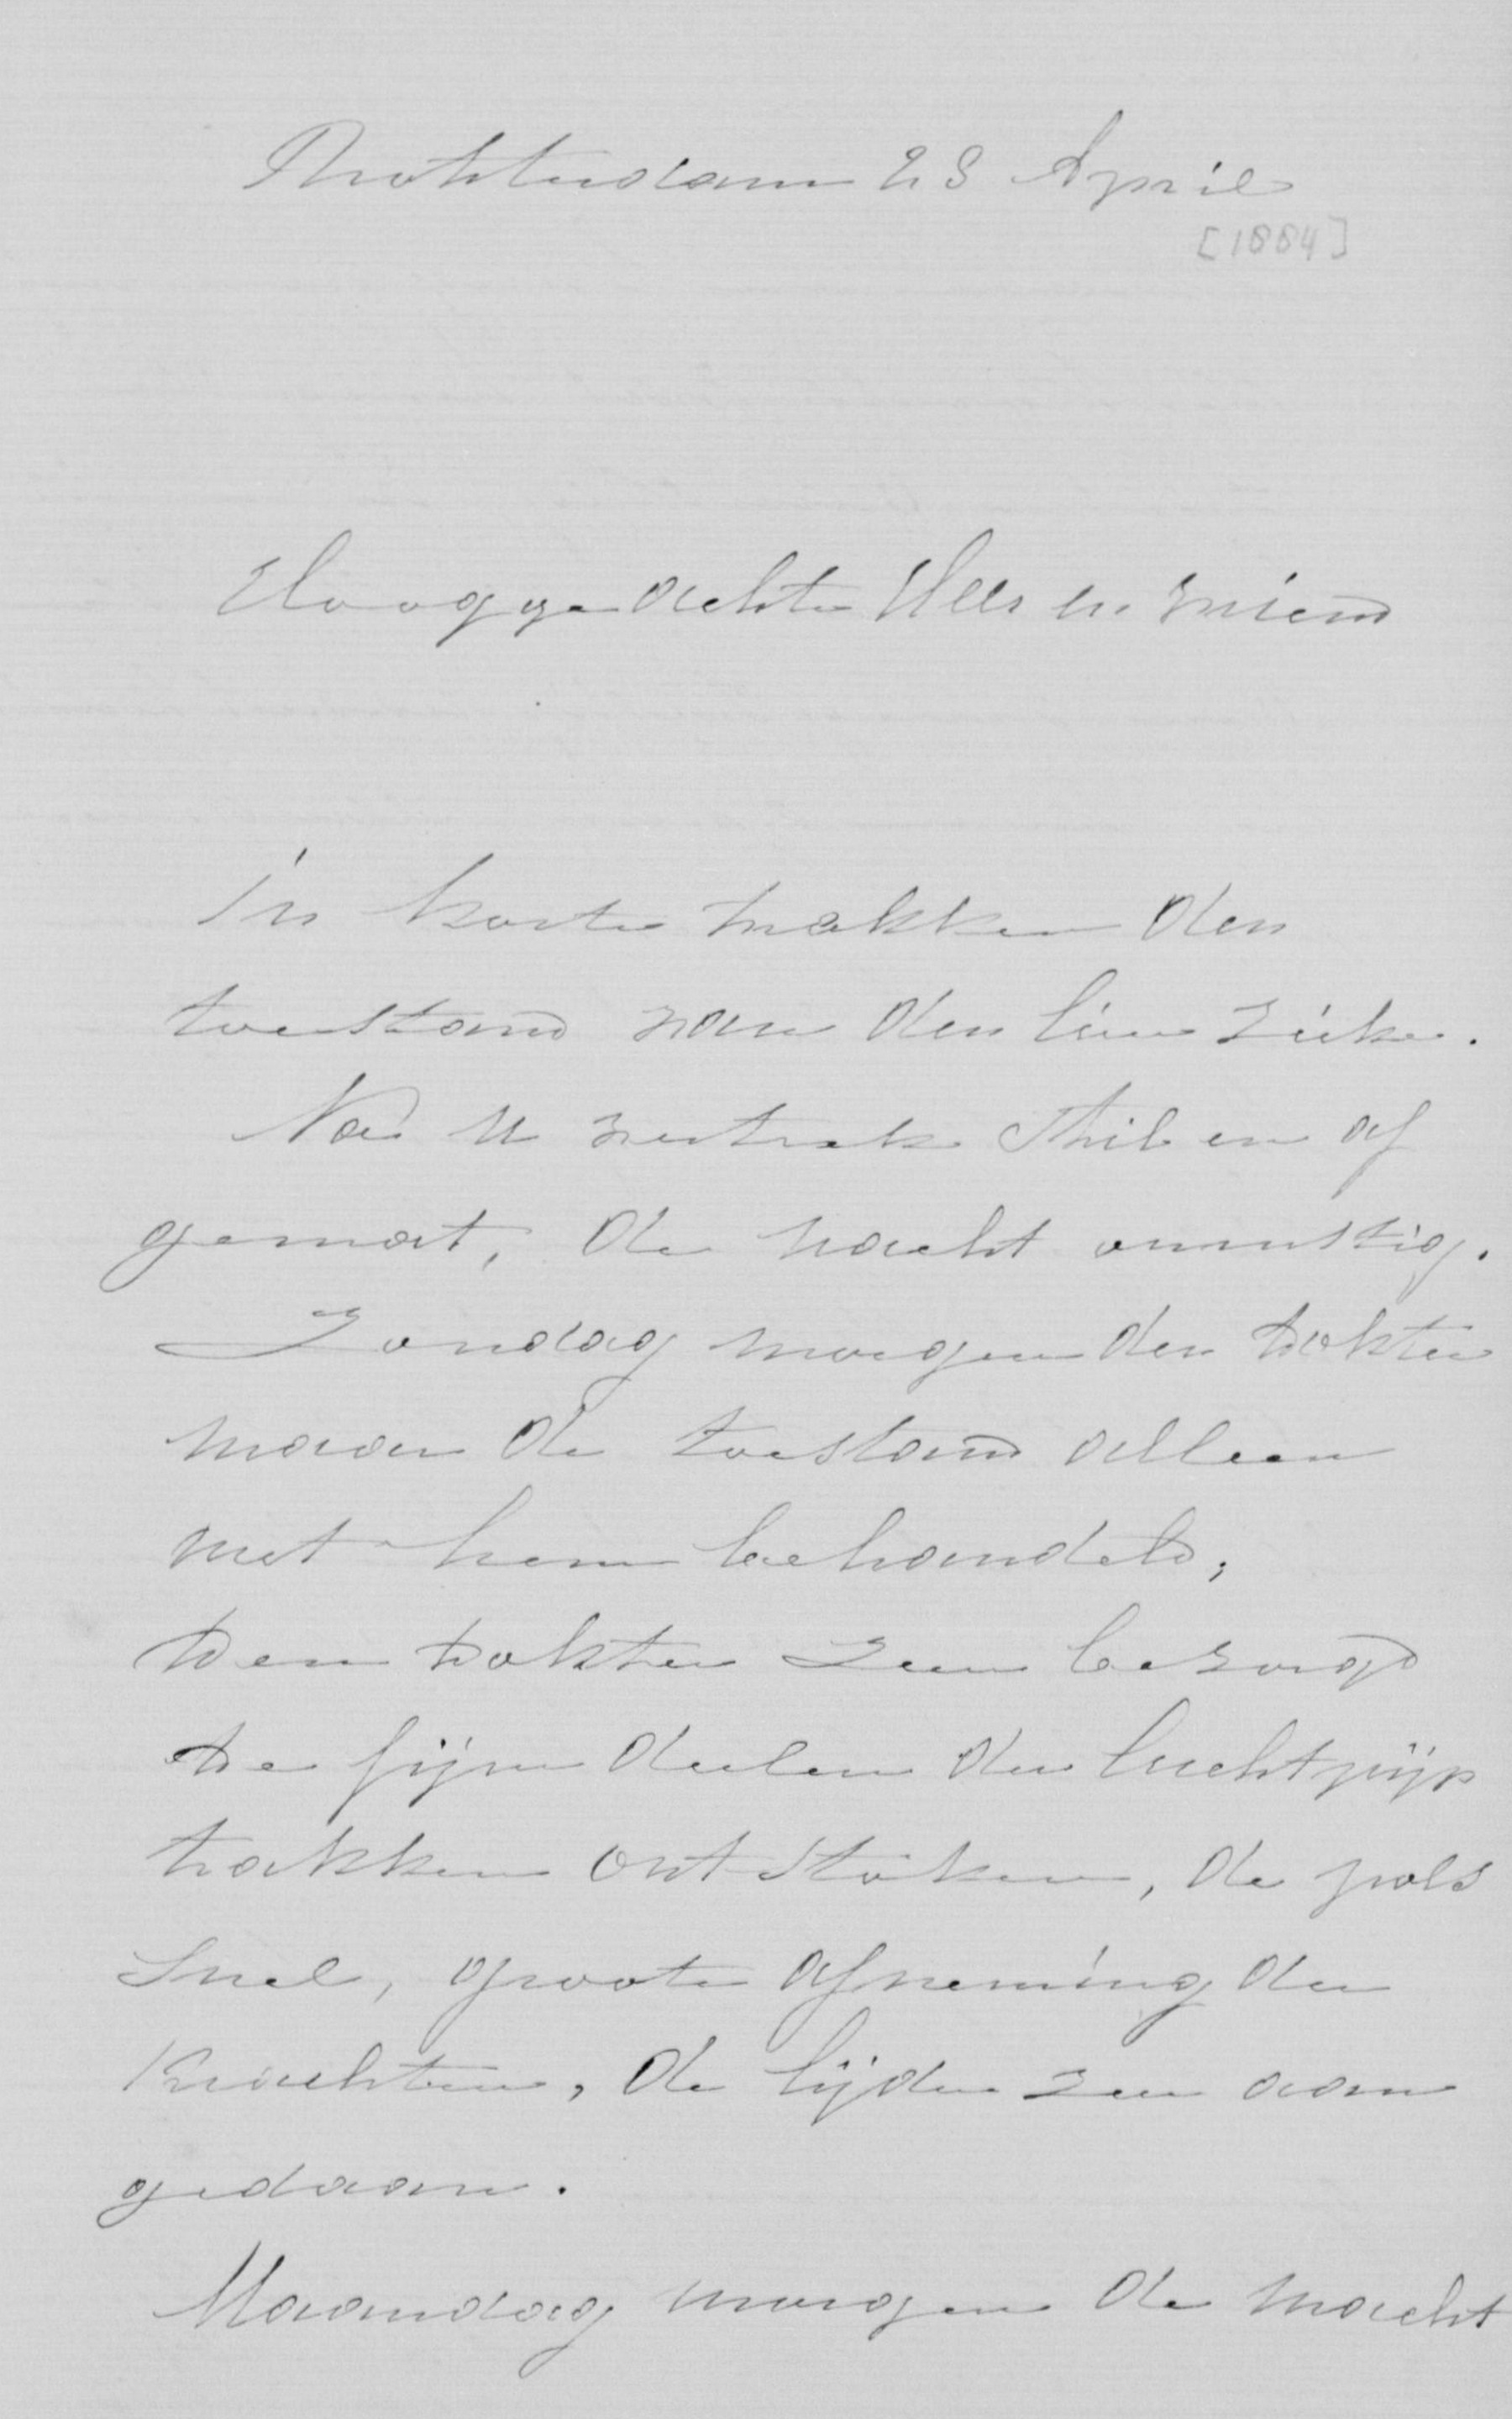 Rotterdam 28 April
[1884]
Hooggeachte Heer en vriend
In korte trekken den
toestand van den lieve zieke.
Na U vertrek stil en af
gemat, de nacht onrustig.
Zondag morgen den dokter
waar de toestand alleen
met hem behandeld;
Den dokter zeer bezorgd
de fijne deelen der luchtpijp
takken ontstoken, de pols
snel, groote afneming der
Krachten, de lijder zeer aan
gedaan.
Maandag morgen de nacht